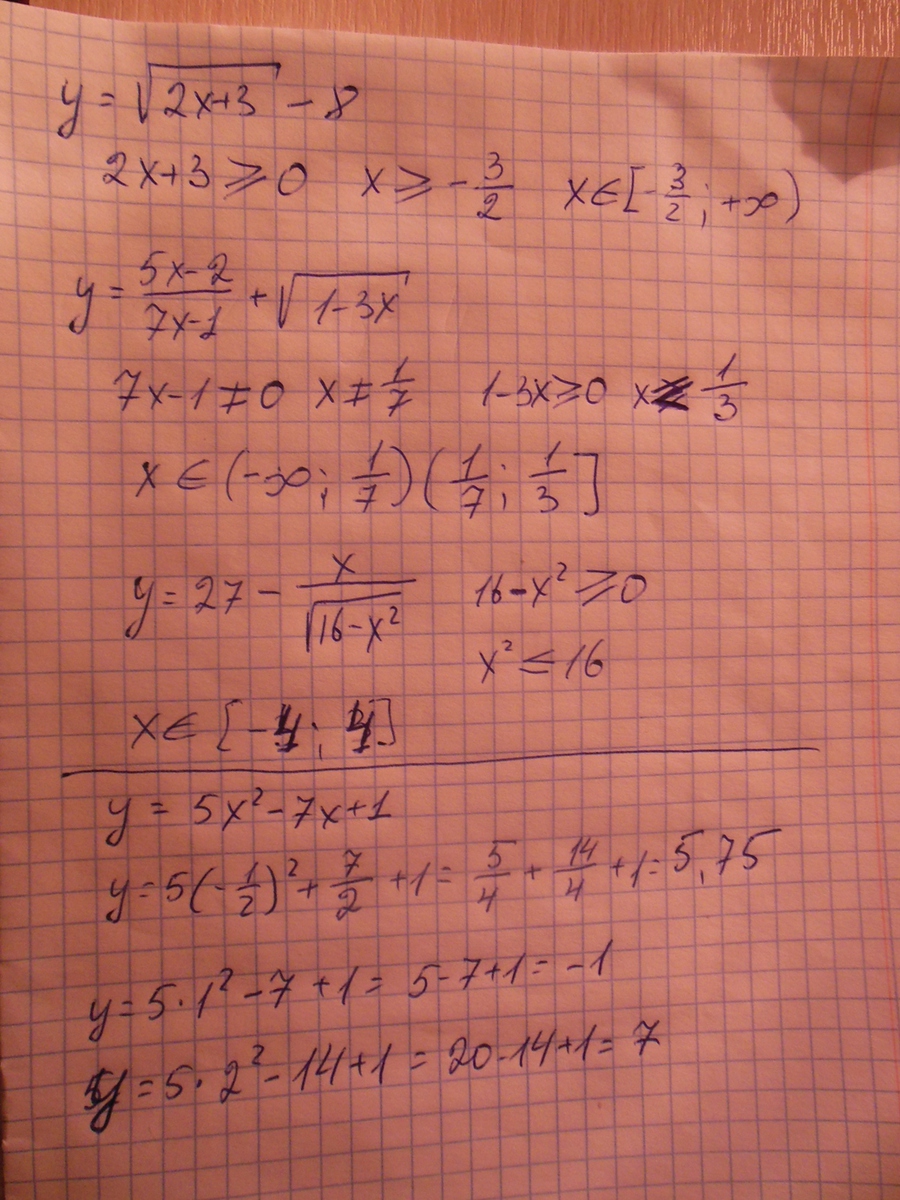 y = √(2x+3) - 8
2x+3 ≥ 0 x ≥ -3/2 x ∈ [-3/2; +∞)
y = (5x-2)/(7x-1) + √(1-3x)
7x-1 ≠ 0 x ≠ 1/7 1-3x ≥ 0 x ≤ 1/3
x ∈ (-∞; 1/7)(1/7; 1/3]
y = 27 - x/√(16-x²) 16-x² ≥ 0
x² ≤ 16
x ∈ [-4; 4]
y = 5x² - 7x + 1
y = 5(-1/2)² + 7/2 + 1 = 5/4 + 14/4 + 1 = 5,75
y = 5·1² - 7 + 1 = 5-7+1 = -1
y = 5·2² - 14 + 1 = 20-14+1 = 7